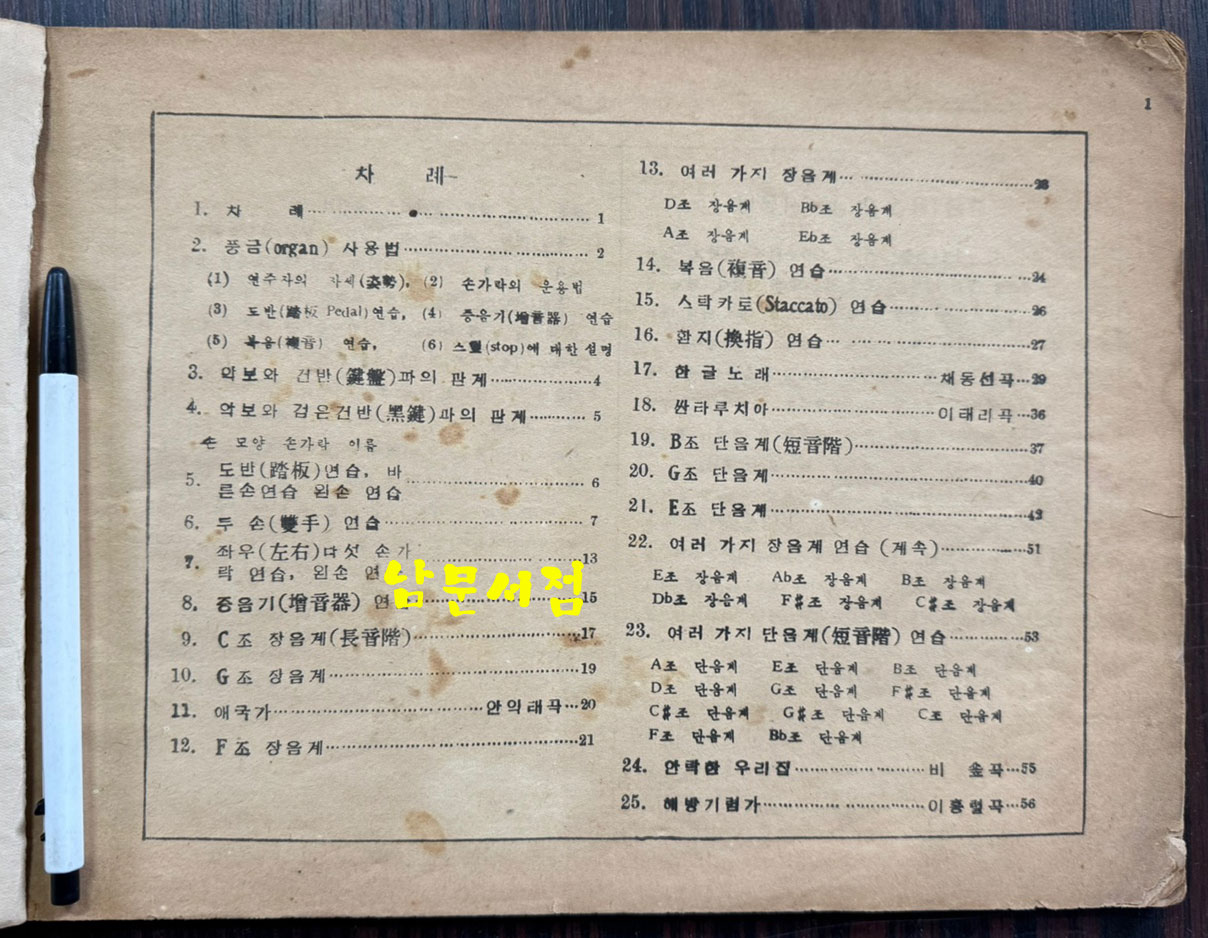 1
차 례
1. 차 례 1
2. 풍금(organ) 사용법 2
(1) 연주자의 자세(姿勢), (2) 손가락의 운용법
(3) 도반(踏板 Pedal)연습, (4) 증음기(增音器) 연습
(5) 복음(複音) 연습, (6) 스톺(stop)에 대한 설명
3. 악보와 건반(鍵盤)과의 관계 4
4. 악보와 검은건반(黑鍵)과의 관계 5
손 모양 손가락 이름
5. 도반(踏板)연습, 바
른손연습 왼손 연습 6
6. 두 손(雙手) 연습 7
7. 좌우(左右)다섯 손가
락 연습, 왼손 연 13
8. 증음기(增音器) 연 15
남문서점
9. C조 장음계(長音階) 17
10. G조 장음계 19
11. 애국가 안익태곡 20
12. F조 장음계 21
13. 여러 가지 장음계
D조 장음계 Bb조 장음계
A조 장음계 Eb조 장음계
14. 복음(複音) 연습 24
15. 스탁카토(Staccato) 연습 26
16. 환지(換指) 연습 27
17. 한글노래 채동선곡 29
18. 싼타루치아 이태리곡 36
19. B조 단음계(短音階) 37
20. G조 단음계 40
21. E조 단음계
22. 여러 가지 장음계 연습 (계속) 51
E조 장음계 Ab조 장음계 B조 장음계
Db조 장음계 F#조 장음계 C#조 장음계
23. 여러 가지 단음계(短音階) 연습 53
A조 단음계 E조 단음계 B조 단음계
D조 단음계 G조 단음계 F#조 단음계
C#조 단음계 G#조 단음계 C조 단음계
F조 단음계 Bb조 단음계
24. 안락한 우리집 비 숖곡 55
25. 해방기념가 이흥렬곡 56